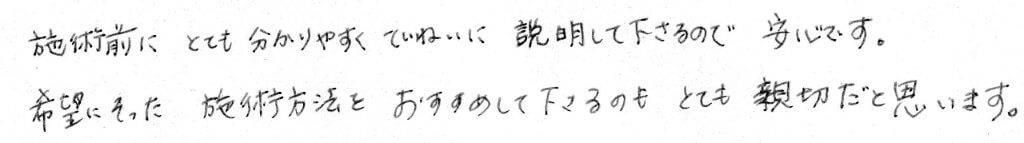 施術前に とても 分かりやすく ていねいに 説明して下さるので 安心です。
希望にそった 施術方法を おすすめして下さるのも とても 親切だと思います。